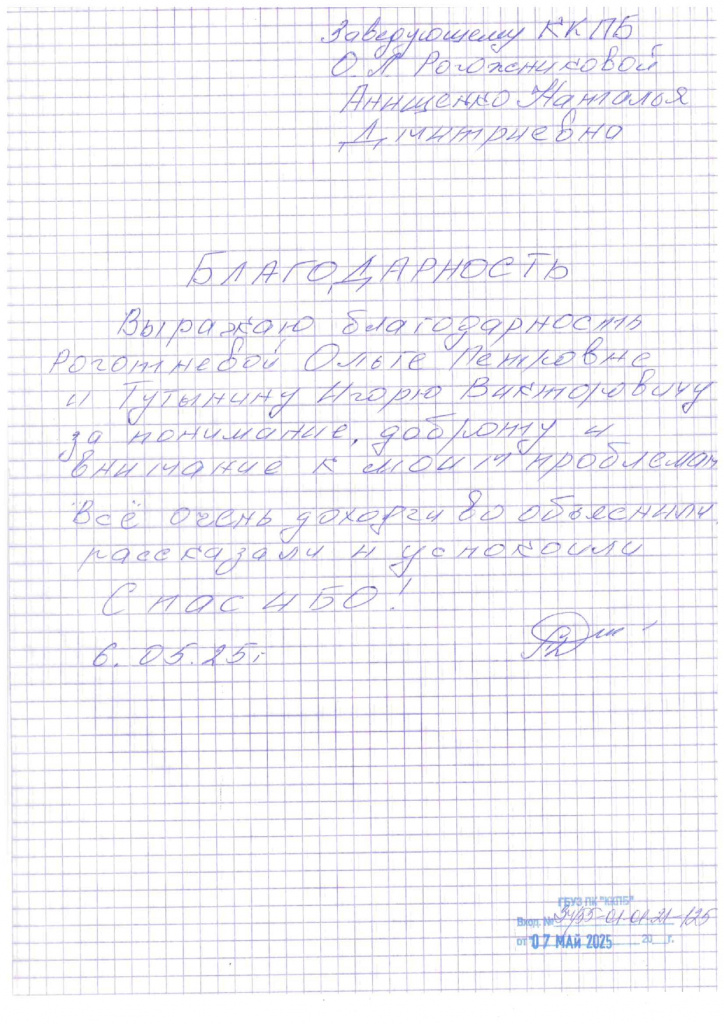 Заведующему ККПБ
О Л Рогожниковой
Анищенко Наталья
Дмитриевна
БЛАГОДАРНОСТЬ
Выражаю благодарность
Роготневой Ольге Петровне
и Тутынину Игорю Викторовичу
за понимание, доброту и
внимание к моим проблемам
Всё очень доходчиво объяснили
рассказали и успокоили
СпасиБО!
6. 05.25г
ГБУЗ ПК "ККПБ"
Вход. № -01-01.21-125
от 07 МАЙ 2025 20 г.